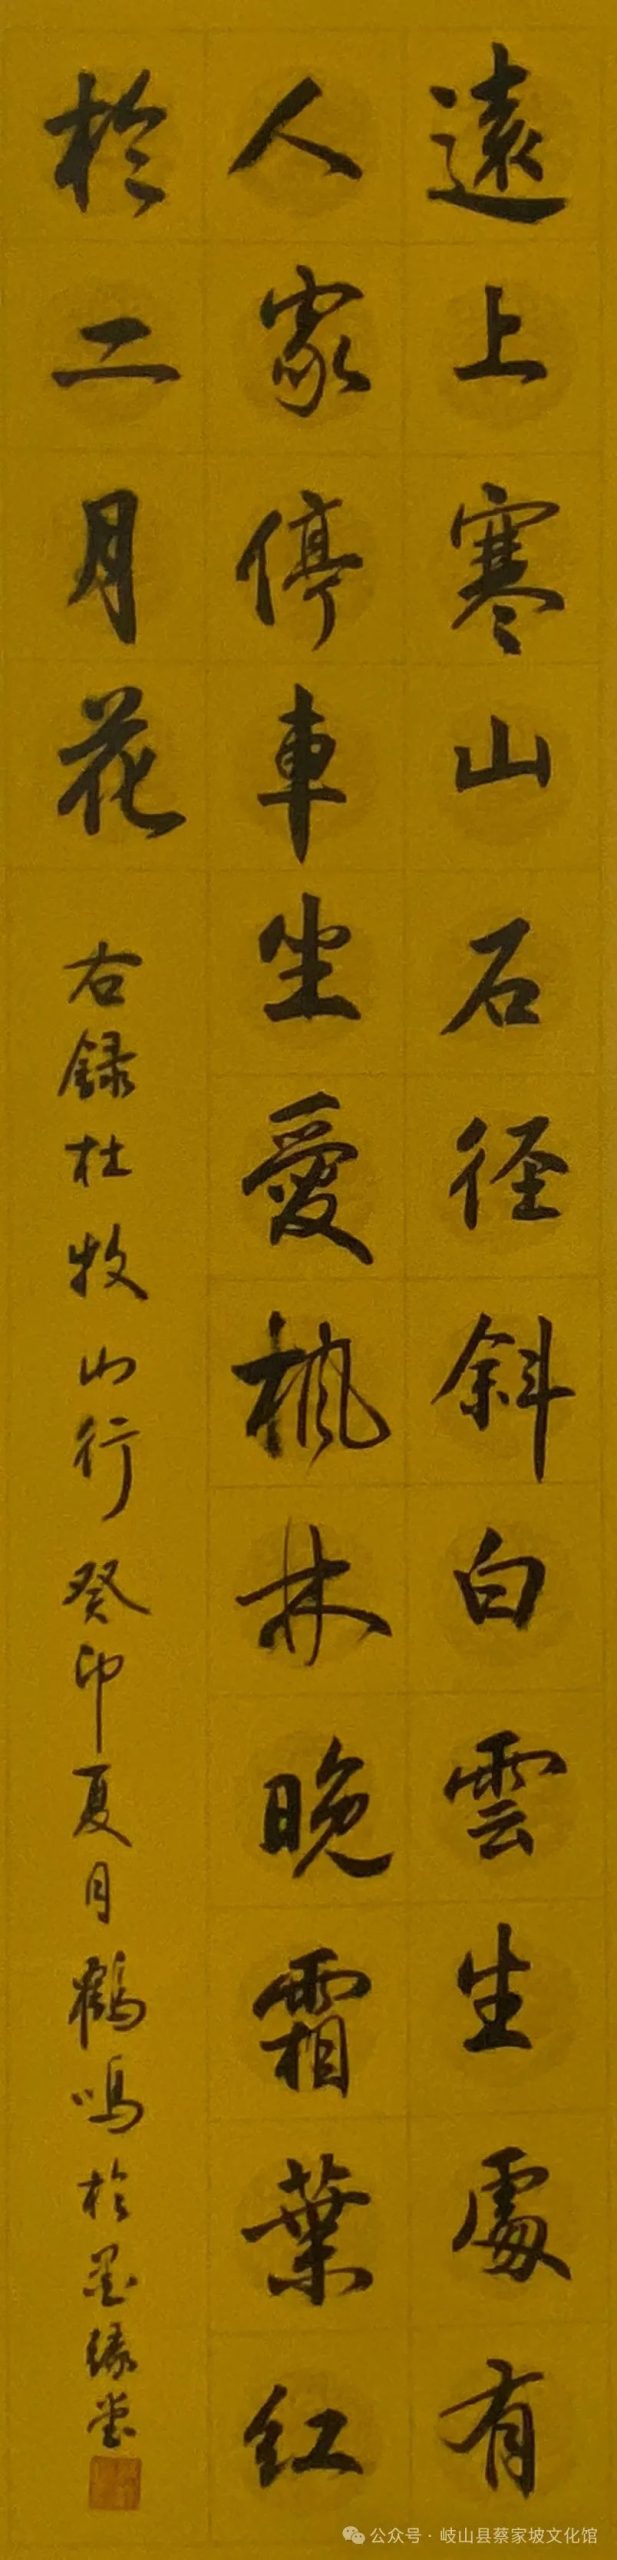 遠上寒山石径斜白雲生處有
人家停車坐愛楓林晚霜葉紅
於二月花
右録杜牧山行癸卯夏月鶴鳴於墨缘堂
公众号·岐山县蔡家坡文化馆